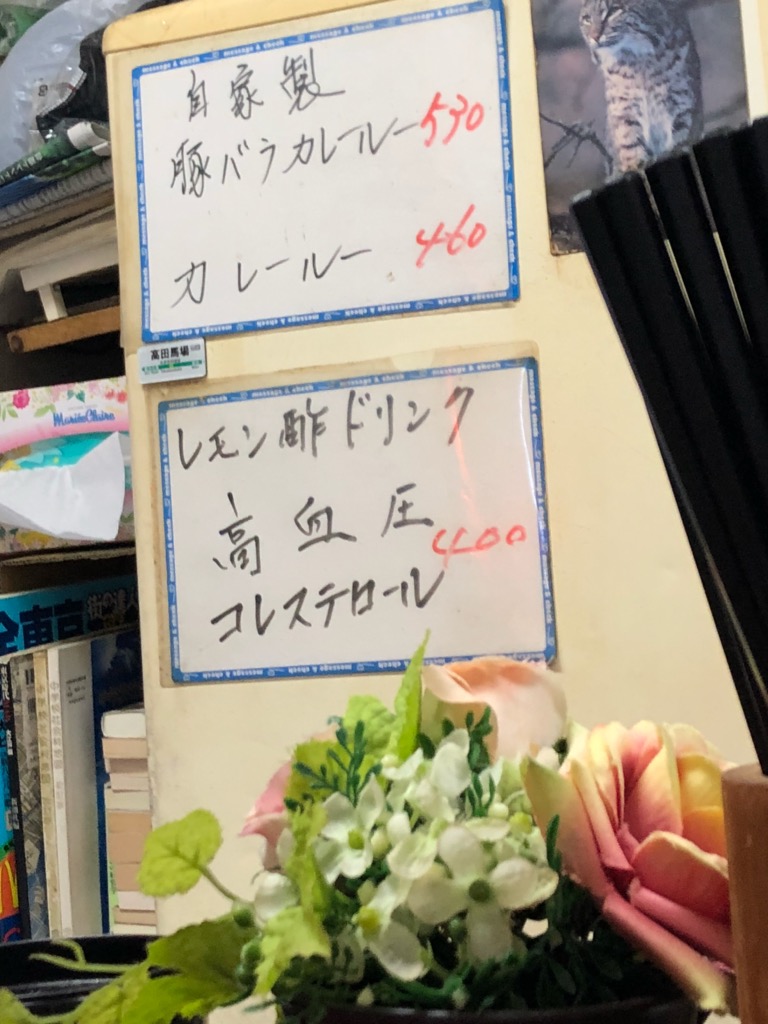 自家製
豚バラカレールー 530
カレールー 460
高田馬場
レモン酢ドリンク
高血圧 400
コレステロール
message & check